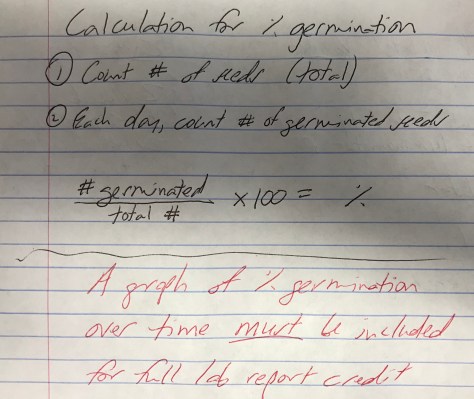 Calculation for % germination
① Count # of seeds (total)
② Each day, count # of germinated seeds
# germinated
total #
x 100 = %
A graph of % germination
over time must be included
for full lab report credit